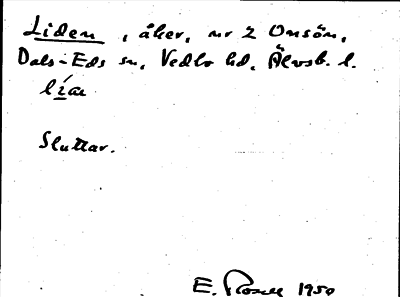 Liden, åker, nr 2 Onsön,
Dals-Eds sn, Vedbo hd, Älvsb. l.
lía
Sluttar.
E. Rosell 1950